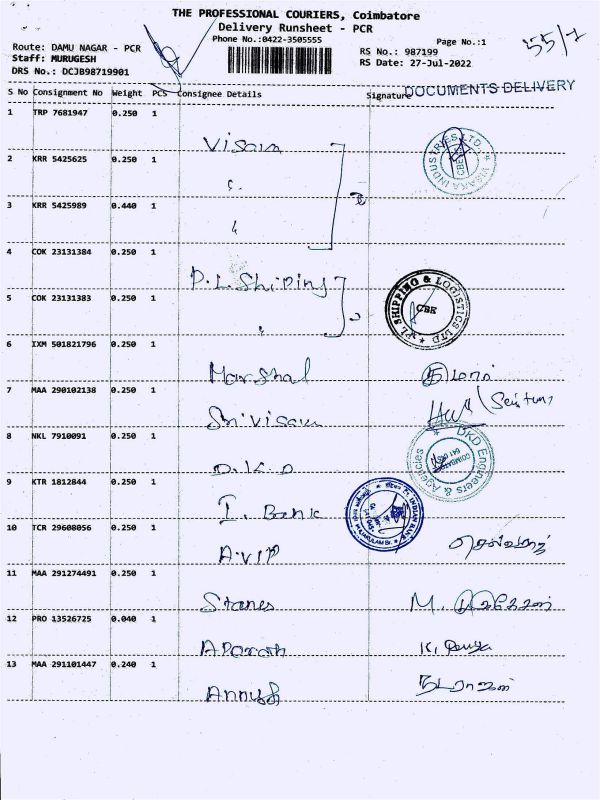 THE PROFESSIONAL COURIERS, Coimbatore
Delivery Runsheet - PCR
Phone No.:0422-3505555
Page No.:1
55/1
Route: DAMU NAGAR - PCR
Staff: MURUGESH
DRS No.: DCJB98719901
RS No.: 987199
RS Date: 27-Jul-2022
DOCUMENTS DELIVERY
S No Consignment No Weight PCS Consignee Details Signature
1 TRP 7681947 0.250 1 Visaka
VISAKA INDUSTRIES LTD. CBE
2 KRR 5425625 0.250 1 "
3 KRR 5425989 0.440 1 "
4 COK 23131384 0.250 1 P.L. Shiping
5 COK 23131383 0.250 1 "
PL SHIPPING & LOGISTICS LTD CBE
6 IXM 501821796 0.250 1 Marshal
7 MAA 290102138 0.250 1
8 NKL 7910091 0.250 1 D.K.D
DKD Engineers & Agencies COIMBATORE
9 KTR 1812844 0.250 1 I. Bank
INDIAN BANK
10 TCR 29608056 0.250 1 A.V.P
11 MAA 291274491 0.250 1 Stanes M.
12 PRO 13526725 0.040 1
13 MAA 291101447 0.240 1 நடராஜன்